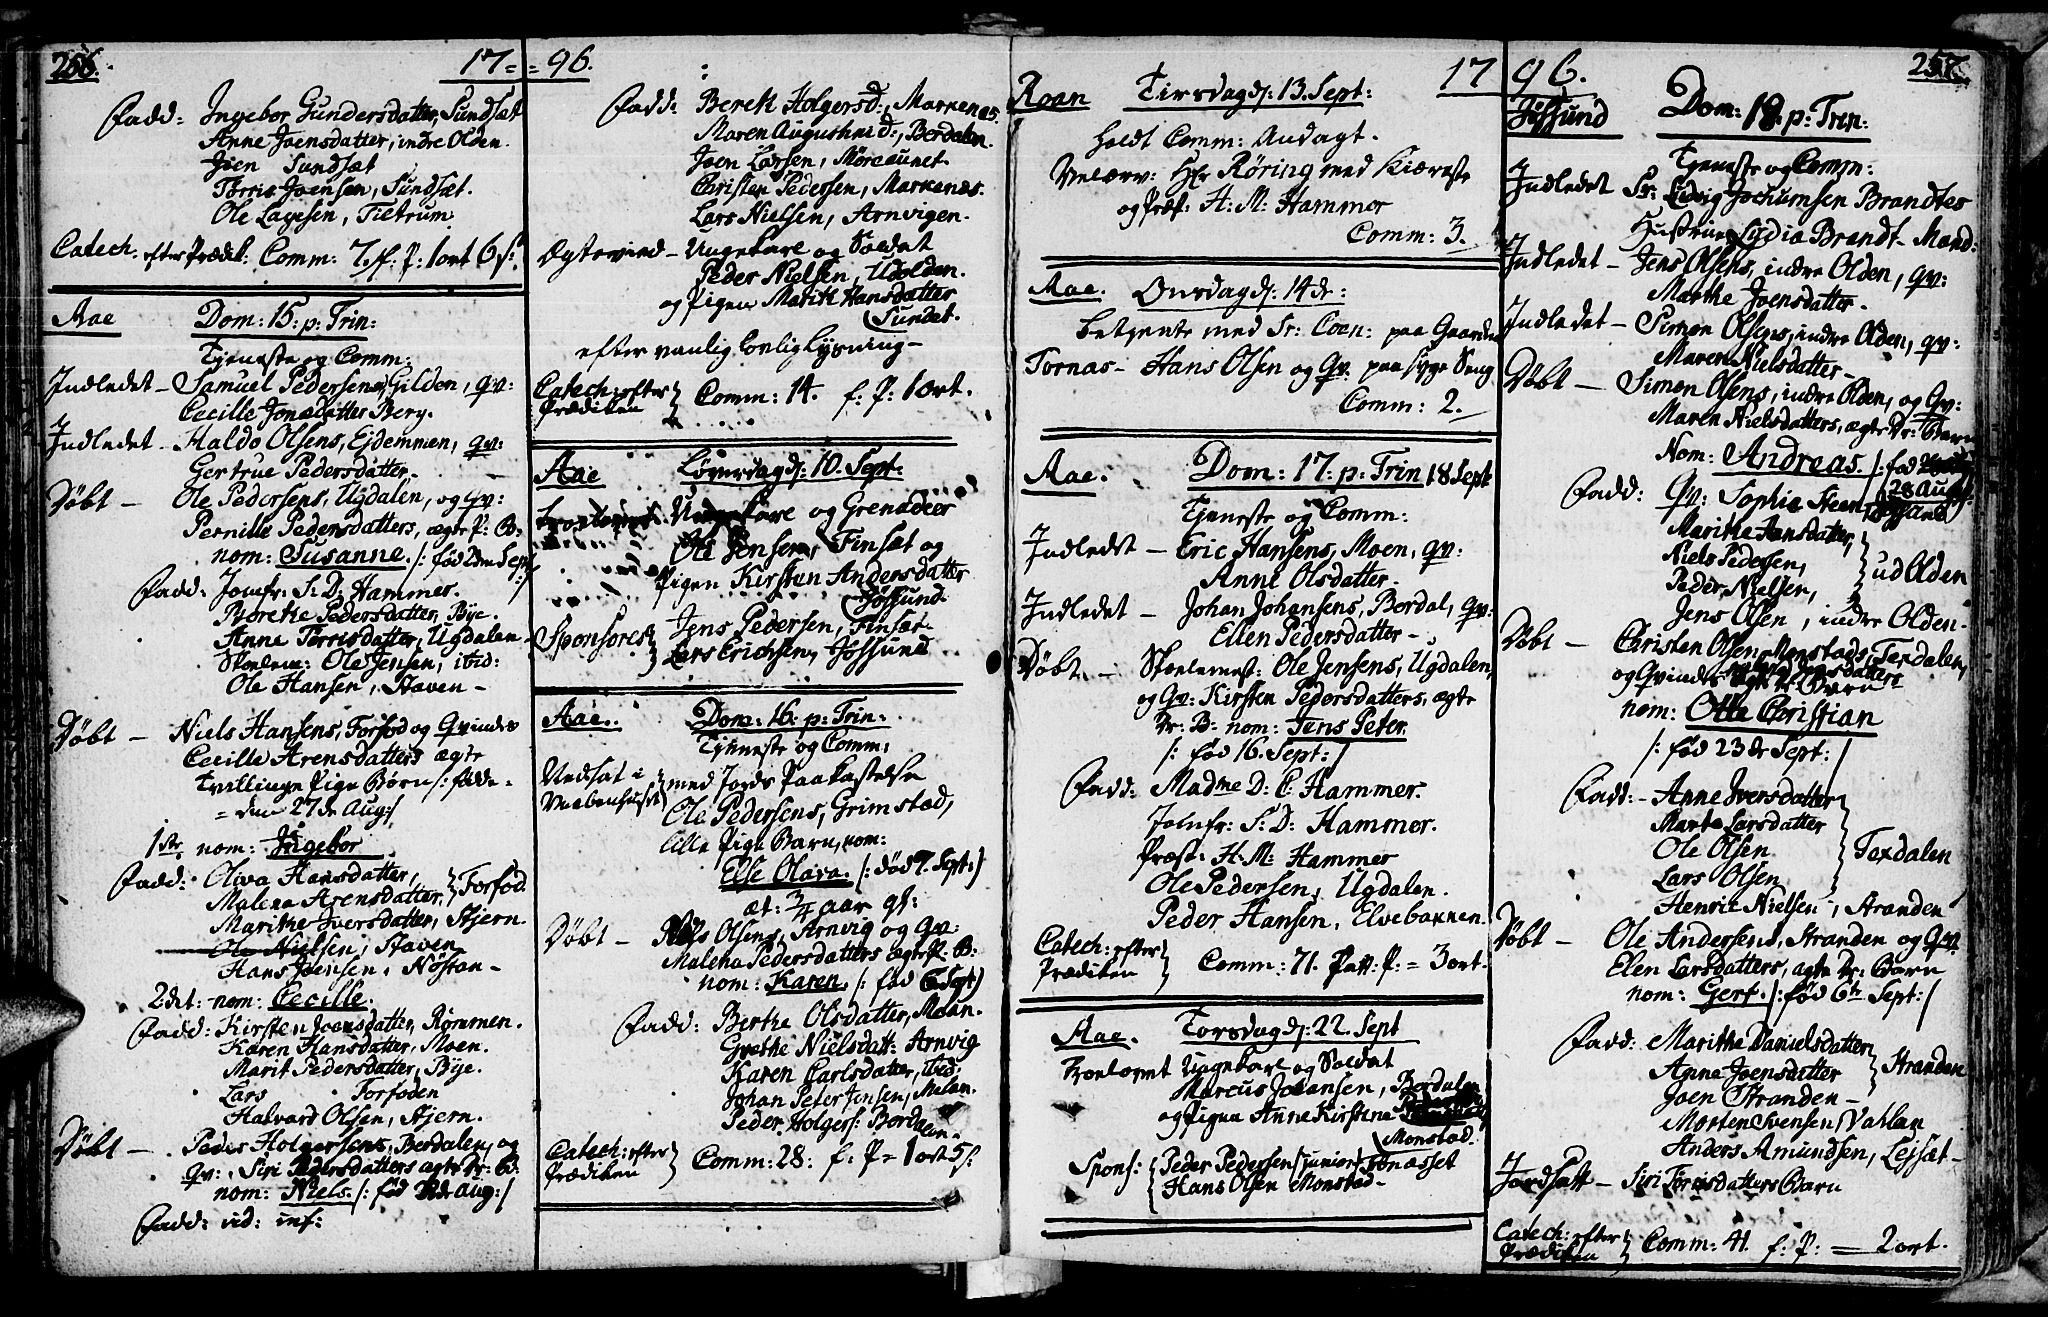 256.
17 = = 96.
Fadd: Ingebor Gundersdatter, Sundsæt
Anne Joensdatter, indre Olden.
Joen Sundsæt
Torris Joensen, Sundsæt.
Ole Lagesen, Tiltrum
Catech. efter Prædik: Comm: 7. f: P: 1 ort 6 s:
Aae Dom: 15: p: Trin:
Tjeneste og Comm:
Indledet – Samuel Pedersens, Gilden, qv:
Cecille Jonsdatter Berg.
Indledet – Haldo Olsens, Ejdemmen, qv:
Gertrue Pedersdatter.
Døbt – Ole Pedersens, Ugdalen, og qv:
Pernille Pedersdatters, ægte P: B:
nom: Susanne. /: fød 2den Sept :/
Fadd: Jomfr: S: D: Hammer.
Borethe Pedersdatter, Bye.
Anne Torrisdatter, Ugdalen
Skolem: Ole Jensen, ibid:
Ole Hansen, Staven –
Døbt – Niels Hansens, Forfod og Qvindes
Cecille Arensdatters ægte
Tvillinge Pige Børn /: fødde =
= den 27de Aug: /
1ste nom: Ingebor
Fadd: Oliva Hansdatter,
Malena Arensdatter, } Forfod.
Marithe Iversdatter, Stjern.
Ole Nielsen, Staven
Hans Joensen, Nøstan –
2det: nom: Cecille.
Fadd: Kirsten Joensdatter, Rømmen.
Karen Hansdatter, Moen.
Marit Pedersdatter, Bye.
Lars Forfoden
Halvard Olsen, Stjern.
Døbt – Peder Holgersens, Berdalen, og
qv: Siri Pedersdatters ægte Dr: B:
nom: Niels. /: fød 2de Aug: /
Fadd: vid: inf:
Fadd: Bereth Holgersd:, Markenæs.
Maren Augustineid:, Berdalen.
Joen Larsen, Møreaunet
Christen Pedersen, Markenæs.
Lars Nielsen, Arnvigen.
Ægtevied – Ungekarl og Soldat
Peder Nielsen, Udolden.
og Pigen Marith Hansdatter
(Sundet.
efter vanlig lovlig Lysning –
Catech: efter Prædiken } Comm: 14. f: P: 1 ort.
Aae Løverdag d: 10. Sept:
Ungekarl og Grenadeer
Ole Jensen, Finsæt og
Pigen Kirsten Andersdatter
(Jøssund.
Sponsores } Jens Pedersen, Finsæt
Lars Erichsen, Jøssund
Aae. Dom: 16. p: Trin:
Tjeneste og Comm:
Nedsat i Vaabenhuset } med Jords Paakastelse
Ole Pedersens, Grimstad,
lille Pige Barn, nom:
Else Olava. /: død 7. Sept: /
æt: 3/4 aar gl:
Døbt – Niels Olsens, Arnvig og Qv:
Malena Pedersdatters ægte P: B:
nom: Karen. /: fød 6 Sept /
Fadd: Berthe Olsdatter, Moan.
Grethe Nielsdatt: Arnvig
Karen Carlsdatter, ibid:
Johan Peter Jensen, Melan.
Peder Holgers: Bordalen.
Catech: efter Prædiken } Comm: 28: f: P = 1 ort 5 s:
17 96.
257.
Roan Tirsdag d: 13. Sept:
holdt Comm: Andagt.
Nelærv: Hr Røring med Kiæreste
og Præs: H: M: Hammer
Comm: 3.
Aae. Onsdag d: 14de:
betjente med Sr: Coen: paa Gaarden
Tornæs – Hans Olsen og Qv. paa syge Seng
Comm: 2.
Aae. Dom: 17. p: Trin 18 Sept
Tjeneste og Comm:
Indledet – Eric Hansens, Moen, qv:
Anne Olsdatter.
Indledet – Johan Johansens, Bordal, qv:
Ellen Pedersdatter –
Døbt. – Skolemest: Ole Jensens, Ugdalen,
og Qv: Kirsten Pedersdatters, ægte
Dr: B: nom: Jens Peter.
/: fød 16. Sept: /
Fadd: Madme D: C: Hammer.
Jomfr: S: D: Hammer.
Præst: H: M: Hammer
Ole Pedersen, Ugdalen.
Peder Hansen, Elvebakken.
Catech: efter Prædiken } Comm: 71. Fatt: P: = 3 ort.
Aae. Torsdag d: 22. Sept
Troelovet Ungekarl og Soldat
Marcus Johansen, Berdalen
og Pigen Anne Kirstina
(Monstad.
Spons: { Peder Pedersen (junior) Tønæsset
Hans Olsen Monstad –
Jøssund Dom: 18: p: Tren:
Tjeneste og Comm:
Indledet Sr: Ludvig Jochumsen Brandtes
Hustrue Lydia Brandt – Mand:
Indledet – Jens Olsens, indre Olden, qv:
Marthe Joensdatter.
Indledet – Simon Olsens, indre Olden, qv:
Maren Nielsdatter –
Døbt – Simon Olsens, indre Olden, og Qv:
Maren Nielsdatters, ægte Dr: Barn
Nom: Andreas. /: fød
(28 Aug:
Fadd: Qv: Sophie Steen, Jøssund)
Marithe Hansdatter,
Niels Pedersen,
Peder Nielsen, } udOlden
Jens Olsen, indre Olden.
Døbt – Christen Olsen Monstads, Texdalen,
og Qvindes
ægte Dr: Barn
nom: Otte Christian
/: fød 23de Sept: /
Fadd: – Anne Iversdatter
Marte Larsdatter
Ole Olsen } Texdalen
Lars Olsen
Henric Nielsen, Stranden
Døbt – Ole Andersens, Stranden og Qv:
Elen Larsdatters, ægte Dr: Barn
nom: Gert. /: fød 6te Sept: /
Fadd: Marithe Danielsdatter
Anne Joensdatter } Stranden
Joen Stranden –
Morten Svensen, Vaklan
Anders Amundsen, Lejsæt –
Jordsatt – Siri Torrisdatters Barn
Catech: efter Prædiken } Comm: 41. f: P: = 2 ort.